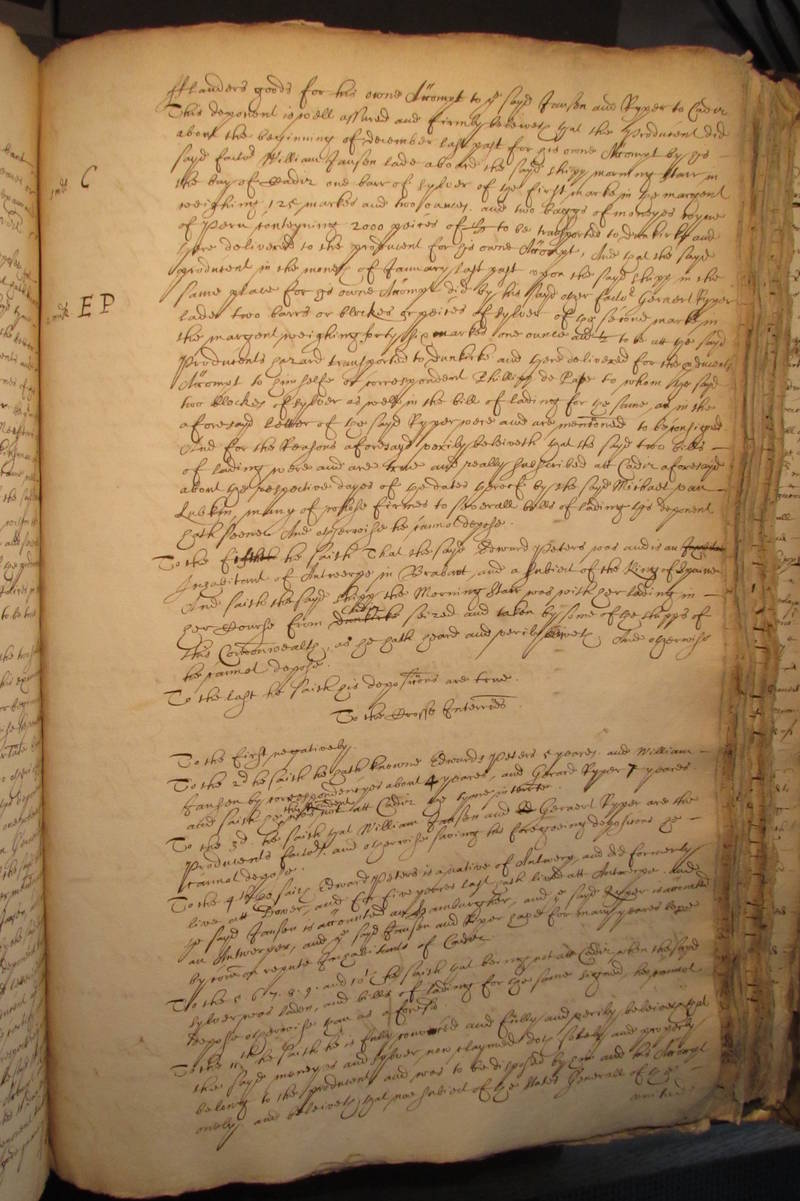 fflanders goods for his owne Accompt to ye sayd Jansen and Ryper to Cadiz
This deponent is well assured and firmly beleiveth that the Producent did
about the beginning of december last past for his owne Accompt by his
sayd factor William Jansen lade aboard the sayd shipp morning starr in
1 mke C
the bay of Cadiz one barr of sylver of the first marke in the margent
weighing 125 markes and two ounces, and two baggs of moneyes coyne
of Peru conteyning 2000 peices of to be transported to dunkirke and
there delivered to the producent for his owne Accompt, And that the sayd
producent in the moneth of January last past upon the sayd shipp in the
2 mke EP
same place for his owne Accompt did by his sayd other factor Geraert Ryper
lade two barrs or blockes or peices of sylver of the second marke in
the margent weighing forty six markes one ounce and ½ to be att the sayd
Producents hazard transported to dunkirke and there delivered for the Producents
Accompt to himselfe or correspondent Phillipp de Pape to whom the sayd
two blockes of sylver as well in the bill of lading for the same, as in the
aforesayd letter of the sayd Ryper were and are mentioned to be consigned
And for the Reasons aforesayd verily beleiveth that the sayd two bills
of lading were and are true and really subscribed att Cadiz aforesayd
about the respective dayes of the dates thereof by the sayd Michael van
Lubkin, many of whose firmes to severall bills of lading this deponent
hath seene. And otherwise he cannot depose.
To the he saith That the sayd Edward Peters was and is an
Inhabitant of Antwerpe in Brabant, and a subiect of the King of Spaine
And saith the sayd shipp the Morning starr was with her lading in
her Course from Cadiz seized and taken by some of the shipps of
this Commonwealth, as he hath heard and verily beleiveth, And otherwise
he cannot depose.
To the last he saith his depositions are true.
To the Crosse Interries
To the first negatively.
To the 2d he saith he hath knowne Edward Peters 5 yeares, and William
Jansen by correspondencyes about 4 yeares, and Gerard Ryper 7 yeares
and saith att Cadiz the tyme
To the 3d. he saith that William Jansen and Geraert Ryper are the
Producents factors, and otherwise saving his foregoeing depositions he
cannot depose.
To the 4th he saith Edward Peters is a native of Antwerp, and did formerly
live att Dover, and for five yeares last hath lived att Antwerpe. And
ye sayd Jansen is accounted an Hamburgher, and ye sayd Ryper is accounted
an Antwerper, and ye sayd Jansen and Ryper have for many yeares bene
by common repute Inhabitants of Cadiz
To the 5. 6. 7. 8. 9. and 10th he saith that being not att Cadiz when the sayd
sylver was laden, and bills of lading for the same signed, he cannot
depose otherwise than as aforesd
To the 11th he saith he is fully convinced and fully and verily beleiveth that
the sayd moneyes and sylver now claymed doe solely and properly
belong to the producent and was to be disposed by him and his Accompt
onely and beleiveth that noe subiect of the States Generall of the